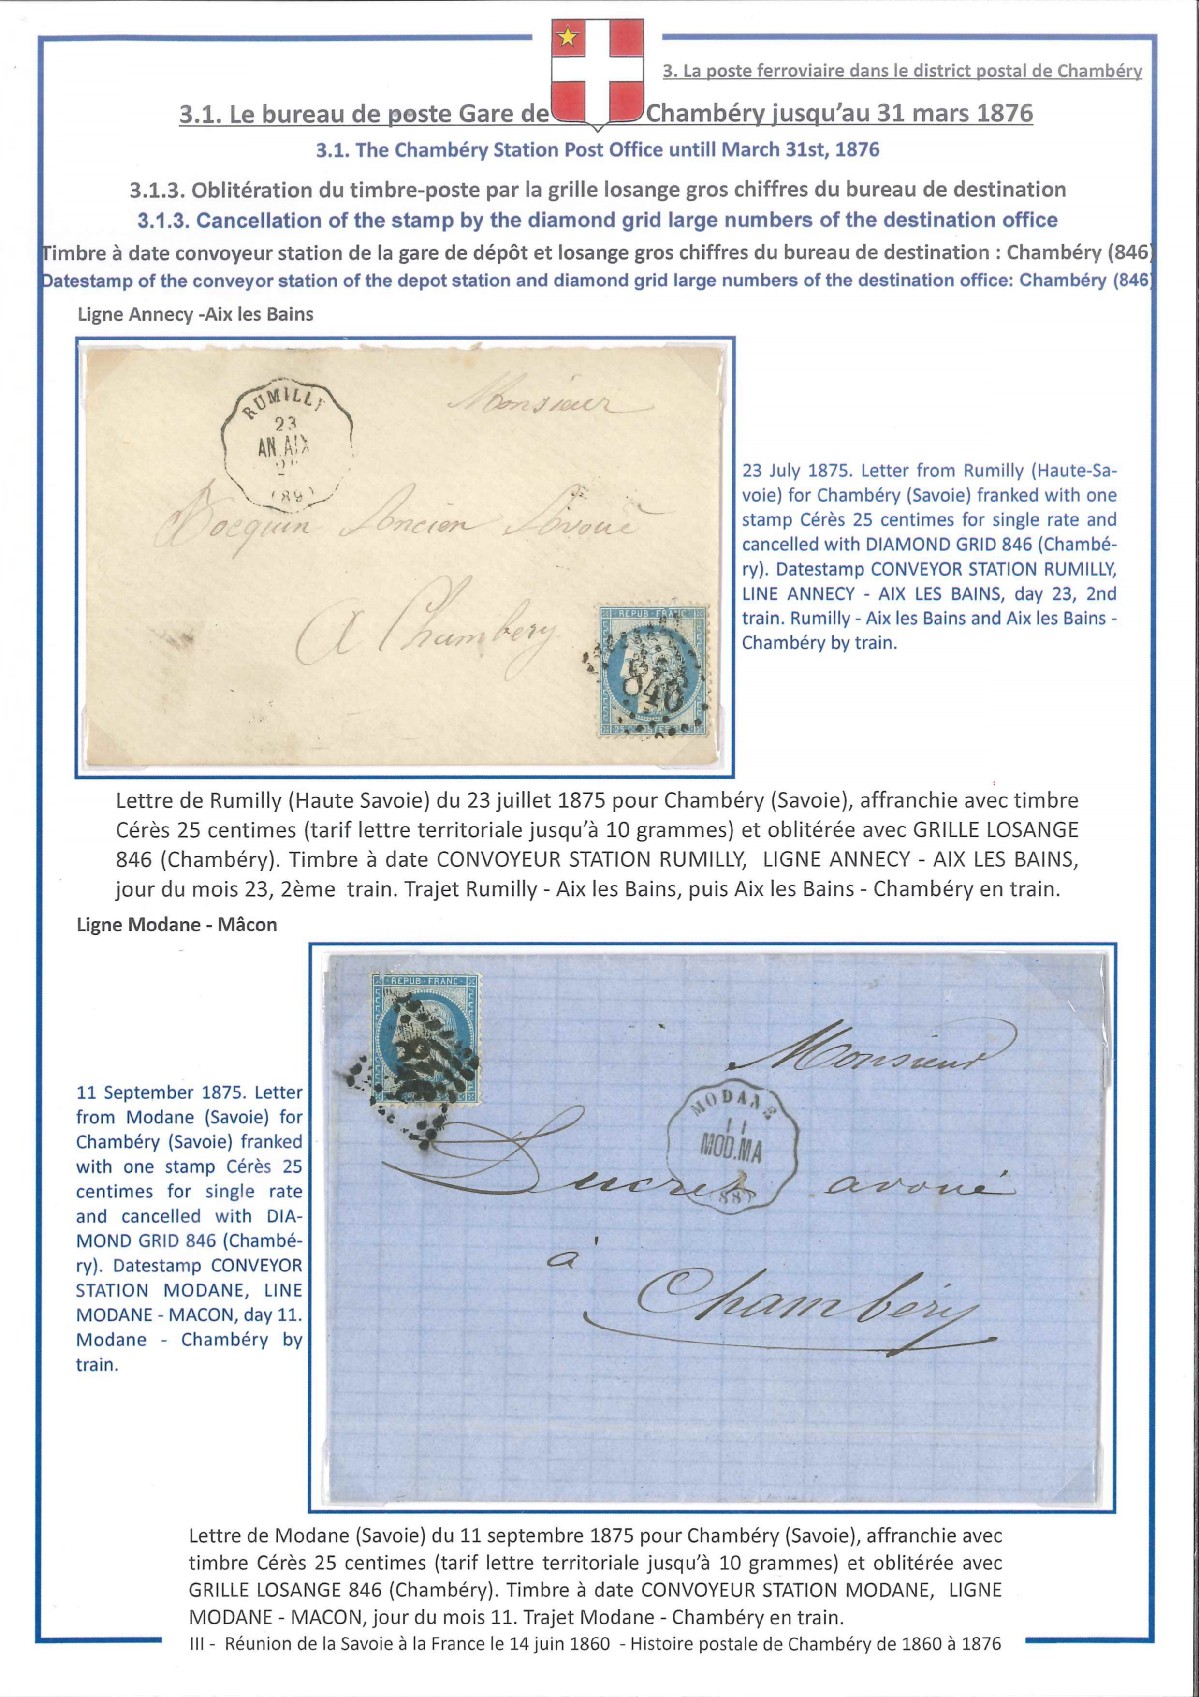 3. La poste ferroviaire dans le district postal de Chambéry
3.1. Le bureau de poste Gare de Chambéry jusqu'au 31 mars 1876
3.1. The Chambéry Station Post Office untill March 31st, 1876
3.1.3. Oblitération du timbre-poste par la grille losange gros chiffres du bureau de destination
3.1.3. Cancellation of the stamp by the diamond grid large numbers of the destination office
Timbre à date convoyeur station de la gare de dépôt et losange gros chiffres du bureau de destination : Chambéry (846)
Datestamp of the conveyor station of the depot station and diamond grid large numbers of the destination office: Chambéry (846)
Ligne Annecy -Aix les Bains
RUMILLY
23
AN.AIX
(89)
Monsieur
Bocquin Ancien Avoué
A Chambéry
REPUB·FRANC·
846
23 July 1875. Letter from Rumilly (Haute-Sa-
voie) for Chambéry (Savoie) franked with one
stamp Cérès 25 centimes for single rate and
cancelled with DIAMOND GRID 846 (Chambé-
ry). Datestamp CONVEYOR STATION RUMILLY,
LINE ANNECY - AIX LES BAINS, day 23, 2nd
train. Rumilly - Aix les Bains and Aix les Bains -
Chambéry by train.
Lettre de Rumilly (Haute Savoie) du 23 juillet 1875 pour Chambéry (Savoie), affranchie avec timbre
Cérès 25 centimes (tarif lettre territoriale jusqu'à 10 grammes) et oblitérée avec GRILLE LOSANGE
846 (Chambéry). Timbre à date CONVOYEUR STATION RUMILLY, LIGNE ANNECY - AIX LES BAINS,
jour du mois 23, 2ème train. Trajet Rumilly - Aix les Bains, puis Aix les Bains - Chambéry en train.
Ligne Modane - Mâcon
REPUB·FRANC·
Monsieur
MODANE
11
MOD.MA
(88)
Ducret avoué
à
Chambéry
11 September 1875. Letter
from Modane (Savoie) for
Chambéry (Savoie) franked
with one stamp Cérès 25
centimes for single rate
and cancelled with DIA-
MOND GRID 846 (Chambé-
ry). Datestamp CONVEYOR
STATION MODANE, LINE
MODANE - MACON, day 11.
Modane - Chambéry by
train.
Lettre de Modane (Savoie) du 11 septembre 1875 pour Chambéry (Savoie), affranchie avec
timbre Cérès 25 centimes (tarif lettre territoriale jusqu'à 10 grammes) et oblitérée avec
GRILLE LOSANGE 846 (Chambéry). Timbre à date CONVOYEUR STATION MODANE, LIGNE
MODANE - MACON, jour du mois 11. Trajet Modane - Chambéry en train.
III - Réunion de la Savoie à la France le 14 juin 1860 - Histoire postale de Chambéry de 1860 à 1876